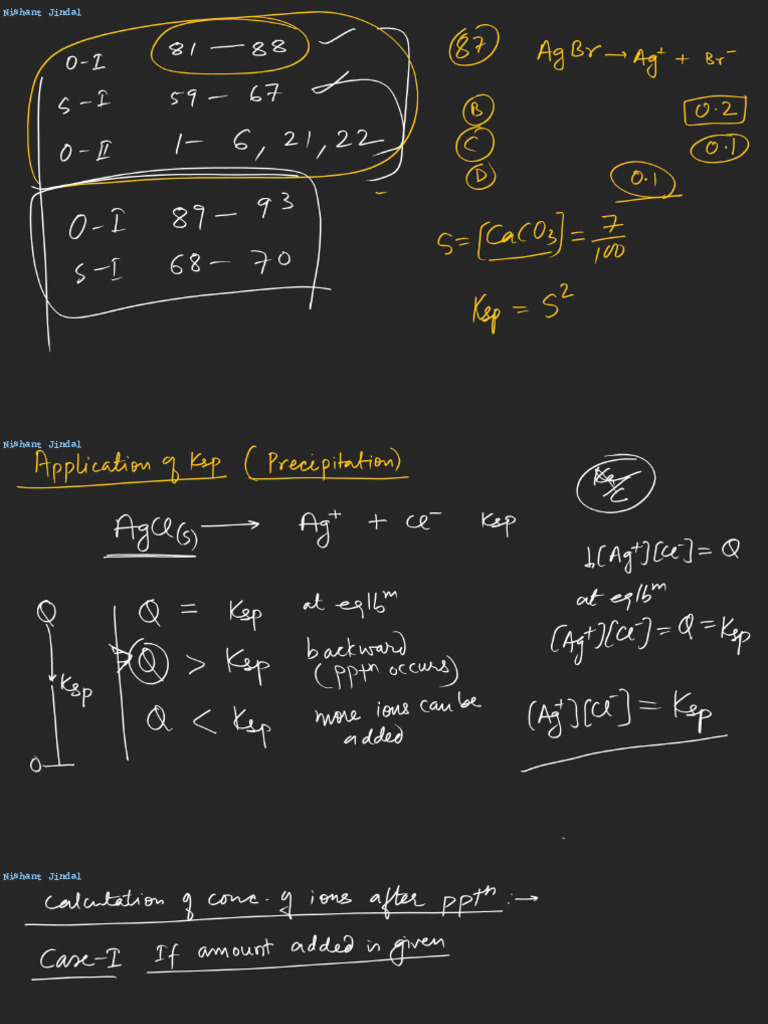 Nishant Jindal
O-I 81 — 88
S-I 59 — 67
O-II 1 — 6, 21, 22
O-I 89 — 93
S-I 68 — 70
87 AgBr → Ag⁺ + Br⁻
B 0.2
C 0.1
D 0.1
S = [CaCO₃] = 7/100
Ksp = S²
Nishant Jindal
Application of Ksp (Precipitation)
AgCl(s) → Ag⁺ + Cl⁻ Ksp
Q
Ksp
0
Q = Ksp at eqlbᵐ
Q > Ksp backward
(pptn occurs)
Q < Ksp more ions can be
added
[Ag⁺][Cl⁻] = Q
at eqlbᵐ
[Ag⁺][Cl⁻] = Q = Ksp
[Ag⁺][Cl⁻] = Ksp
Nishant Jindal
Calculation of conc. of ions after pptⁿ :→
Case-I If amount added is given